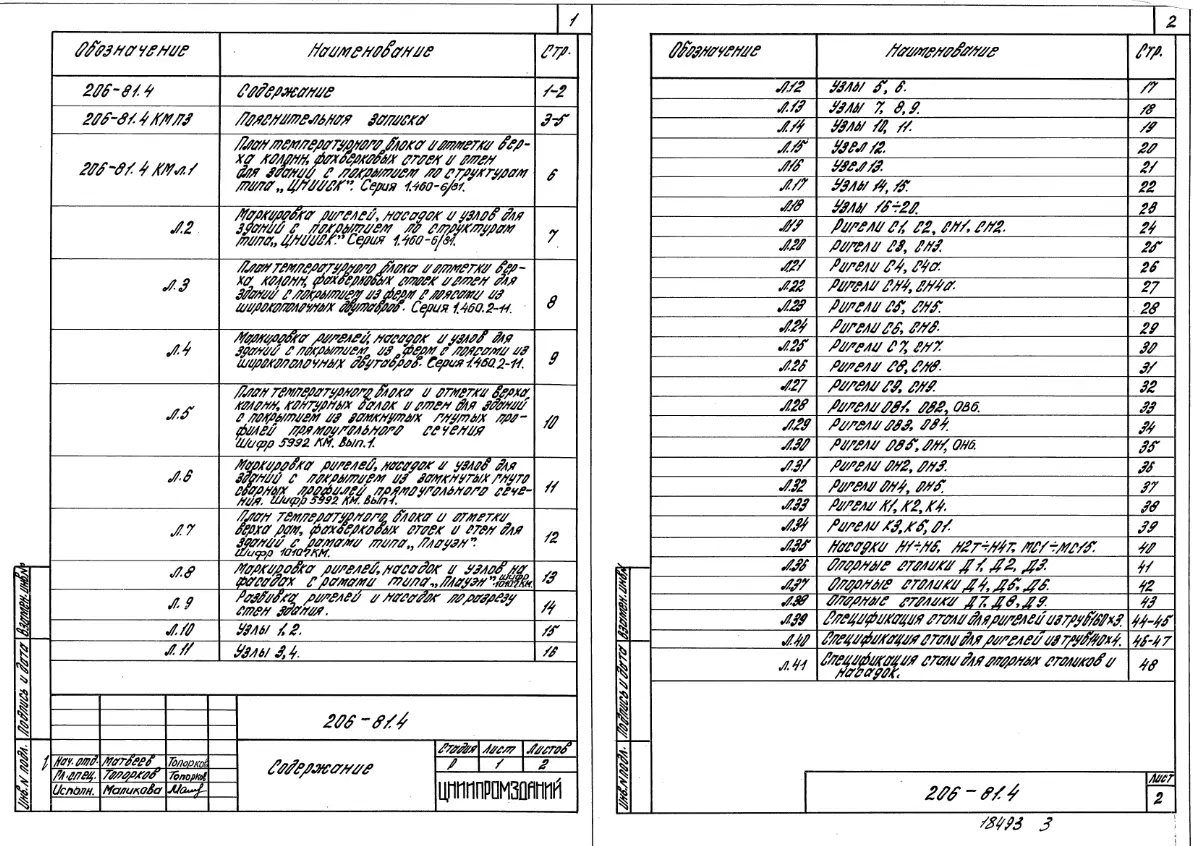 1
Обозначение Наименование Стр.
206-81.4 Содержание 1-2
206-81.4 КМ.ПЗ Пояснительная записка 3-5
План температурного блока и отметки вер-
ха колонн, фахверковых стоек и стен
206-81.4 КМ л.1 для зданий с покрытием по структурам 6
типа „ЦНИИСК”. Серия 1.460-6/81.
Маркировка ригелей, насадок и узлов для
л.2 зданий с покрытием по структурам 7
типа „ЦНИИСК” Серия 1.460-6/81.
План температурного блока и отметки вер-
ха, колонн, фахверковых стоек и стен для
л.3 зданий с покрытием из ферм с поясами из 8
широкополочных двутавров. Серия 1.460.2-11.
Маркировка ригелей, насадок и узлов для
л.4 зданий с покрытием из ферм с поясами из 9
широкополочных двутавров. Серия 1.460.2-11.
План температурного блока и отметки верха
колонн, контурных балок и стен для зданий
л.5 с покрытием из замкнутых гнутых про- 10
филей прямоугольного сечения
Шифр 5992 КМ. Вып.1.
Маркировка ригелей, насадок и узлов для
л.6 зданий с покрытием из замкнутых гнуто
сварных профилей прямоугольного сече- 11
ния. Шифр 5992 КМ. Вып1.
План температурного блока и отметки
л.7 верха рам, фахверковых стоек и стен для
зданий с рамами типа „Плауэн”. 12
Шифр 10107КМ.
л.8 Маркировка ригелей, насадок и узлов на
фасадах с рамами типа „Плауэн”. Шифр 10107КМ. 13
л.9 Разбивка ригелей и насадок по разрезу
стен здания. 14
л.10 Узлы 1, 2. 15
л.11 Узлы 3, 4. 16
206-81.4
Содержание
Стадия Лист Листов
Р 1 2
ЦНИИПРОМЗДАНИЙ
Нач. отд. Матвеев Топорков
Гл. спец. Топорков Топорков
Исполн. Маликова
Инв.N подл. Подпись и дата Взамен.инв.N
2
Обозначение Наименование Стр.
л.12 Узлы 5, 6. 17
л.13 Узлы 7, 8, 9. 18
л.14 Узлы 10, 11. 19
л.15 Узел 12. 20
л.16 Узел 13. 21
л.17 Узлы 14, 15. 22
л.18 Узлы 16÷20. 23
л.19 Ригели С1, С2, СН1, СН2. 24
л.20 Ригели С3, СН3. 25
л.21 Ригели С4, С4а. 26
л.22 Ригели СН4, СН4а. 27
л.23 Ригели С5, СН5. 28
л.24 Ригели С6, СН6. 29
л.25 Ригели С7, СН7. 30
л.26 Ригели С8, СН8. 31
л.27 Ригели С9, СН9. 32
л.28 Ригели ОВ1. ОВ2, ОВ6. 33
л.29 Ригели ОВ3, ОВ4. 34
л.30 Ригели ОВ5, ОН1, ОН6. 35
л.31 Ригели ОН2, ОН3. 36
л.32 Ригели ОН4, ОН5. 37
л.33 Ригели К1, К2, К4. 38
л.34 Ригели К3, К5, О1. 39
л.35 Насадки Н1÷Н6, Н2Т÷Н4Т, МС1÷МС15. 40
л.36 Опорные столики Д1, Д2, Д3. 41
л.37 Опорные столики Д4, Д5, Д6. 42
л.38 Опорные столики Д7, Д8, Д9. 43
л.39 Спецификация стали для ригелей из труб 160×3. 44-45
л.40 Спецификация стали для ригелей из труб 140×4. 46-47
л.41 Спецификация стали для опорных столиков и
насадок. 48
206-81.4
Лист
2
Инв.N подл. Подпись и дата Взамен.инв.N
18493 3